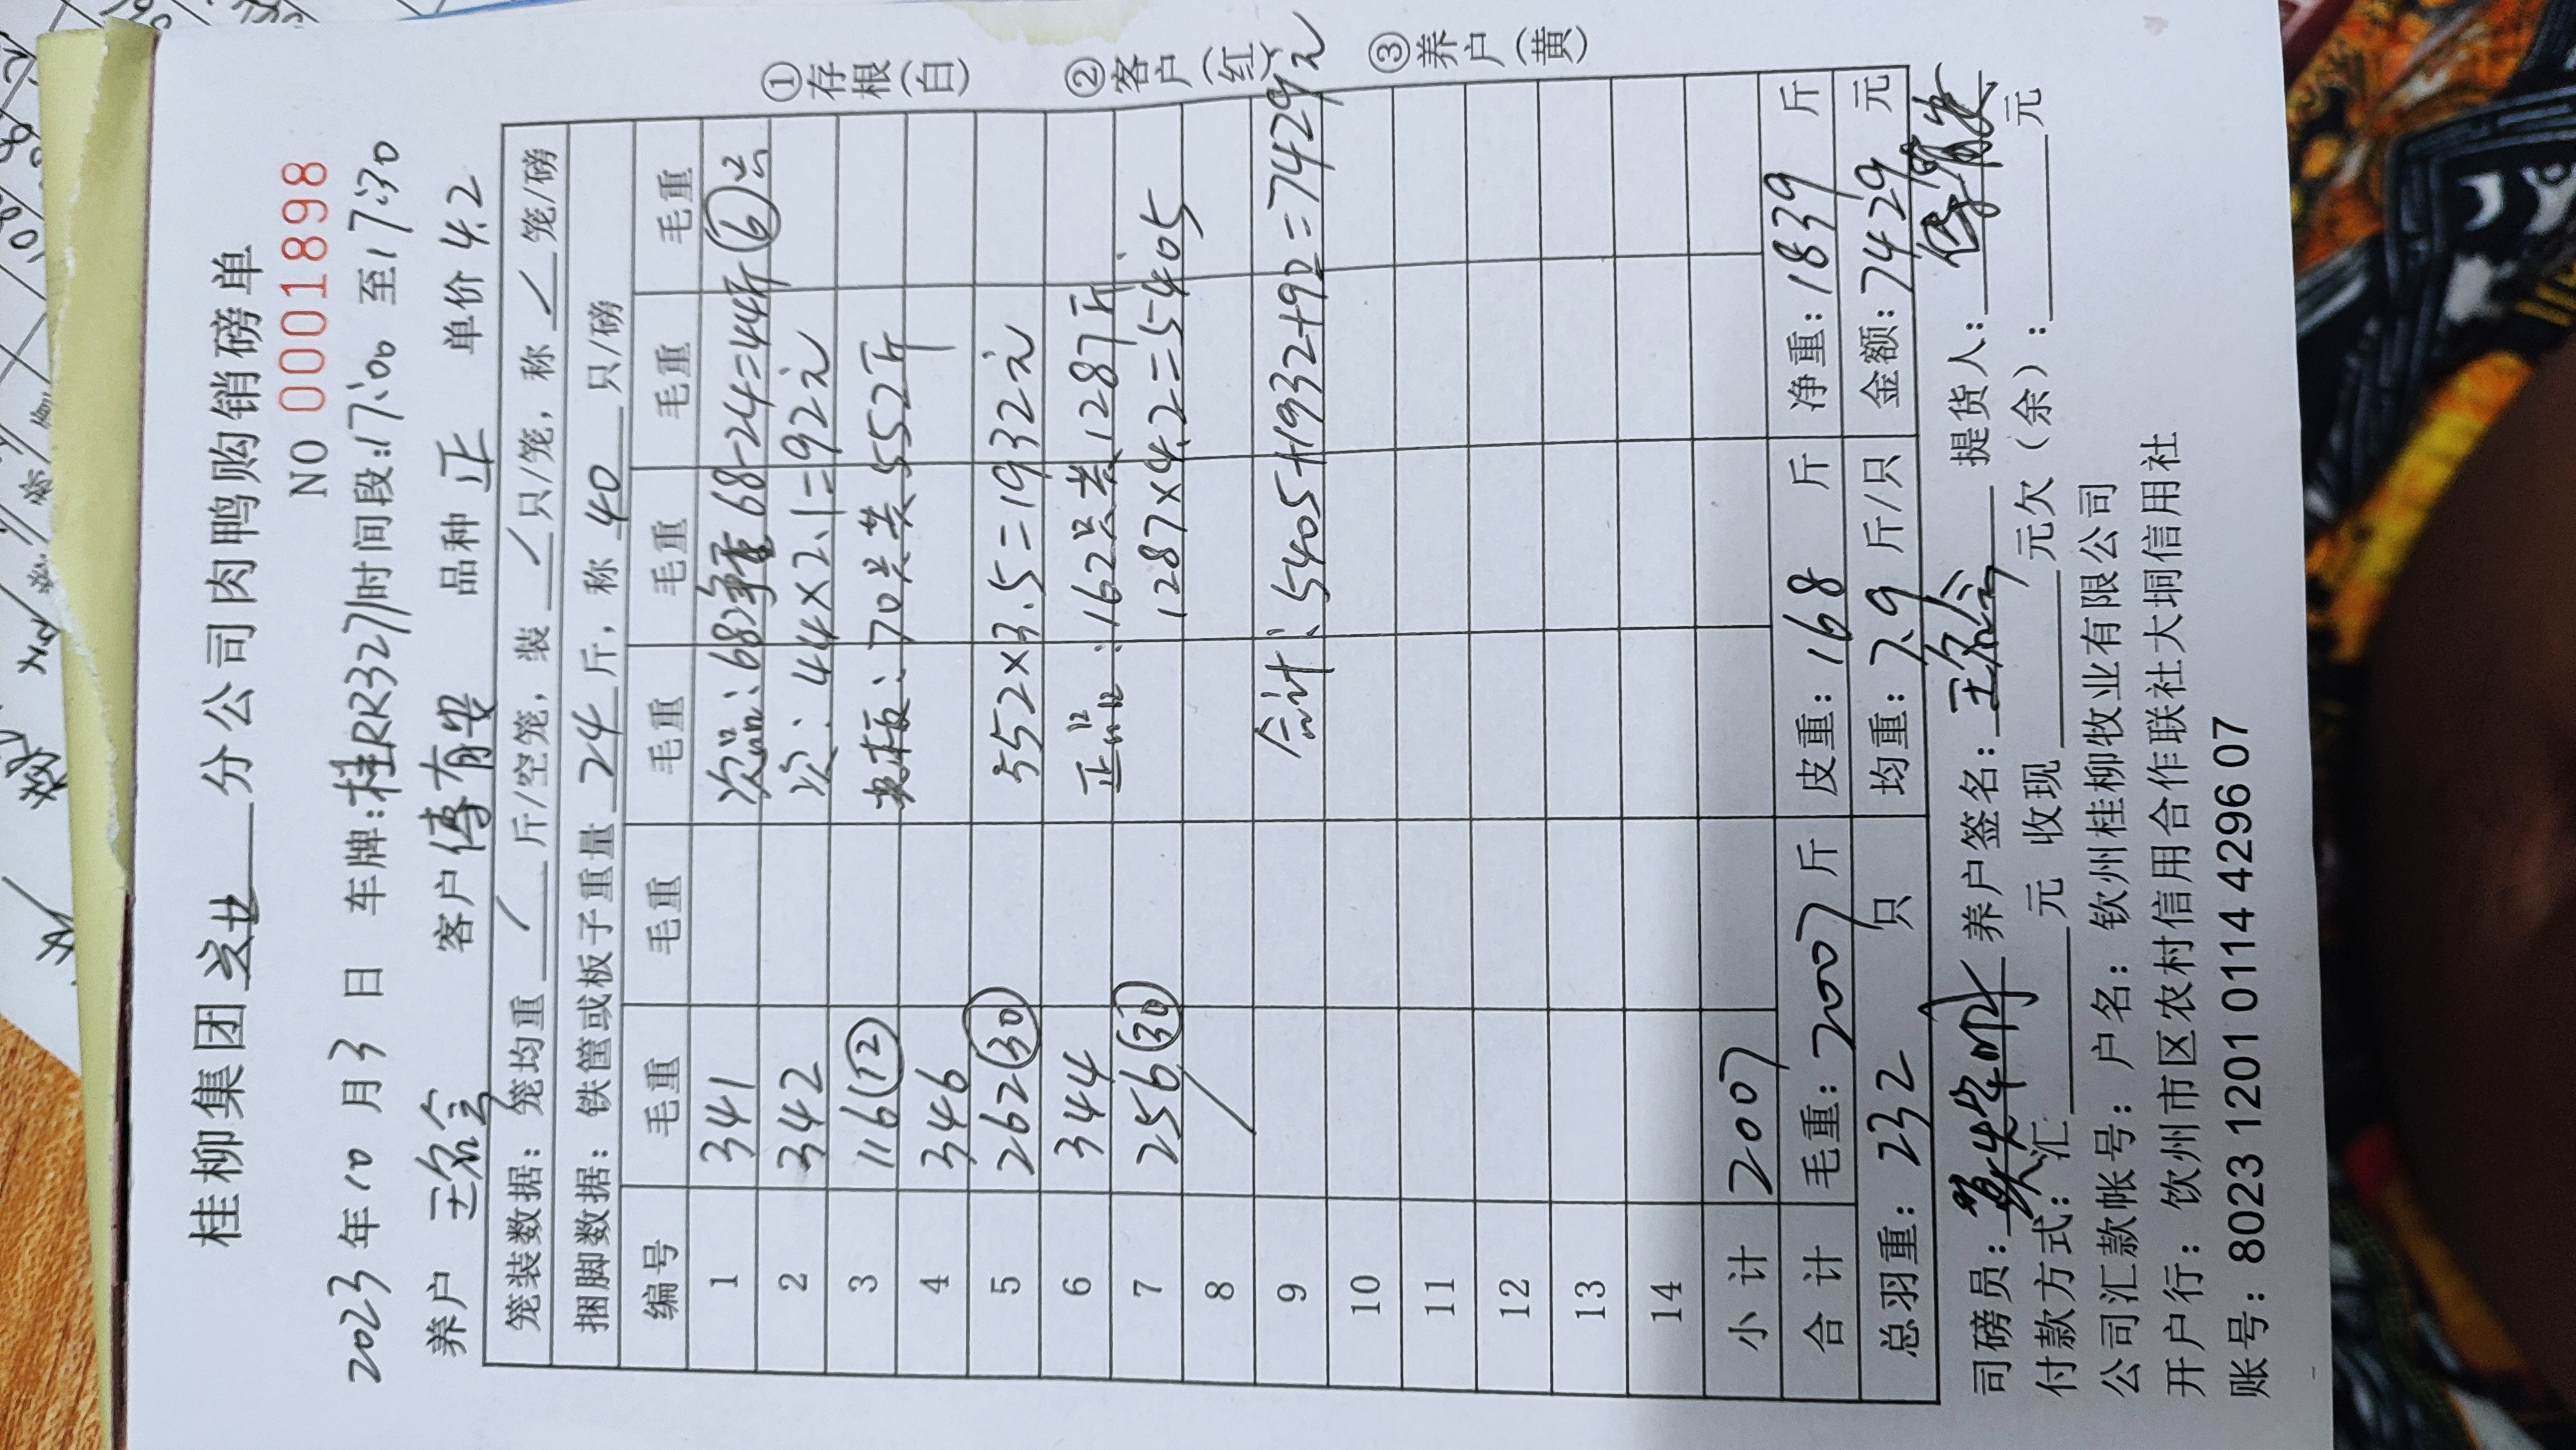 桂柳集团 分公司肉鸭购销磅单
NO 0001898
2023年10月3日 车牌:桂RR3271时间段:17:00至17:30
养户 客户 傅有安 品种 正 单价 4.2
笼装数据: 笼均重 / 斤/空笼, 装 / 只/笼, 称 / 笼/磅
捆脚数据: 铁筐或板子重量 24 斤, 称 40 只/磅
编号 毛重 毛重 毛重 毛重 毛重 毛重
1 341 次品:68净重68-24=44斤(6)只
2 342 次:44×2.1=92元
3 116(12) 70只共552斤
4 346
5 262(30) 552×3.5=1932元
6 344 正品:162只共1287斤
7 256(30) 1287×4.2=5405
8 /
9 合计:5405+1932+92=7429元
10
11
12
13
14
小计 2007
合计 毛重:2007斤 皮重:168 斤 净重:1839 斤
总羽重:232 只 均重:7.9 斤/只 金额:7429 元
司磅员: 养户签名: 提货人:
付款方式:汇 元 收现 元欠(余): 元
公司汇款帐号: 户名: 钦州桂柳牧业有限公司
开户行: 钦州市区农村信用合作联社大垌信用社
账号: 8023 1201 0114 4296 07
①存根(白) ②客户(红) ③养户(黄)